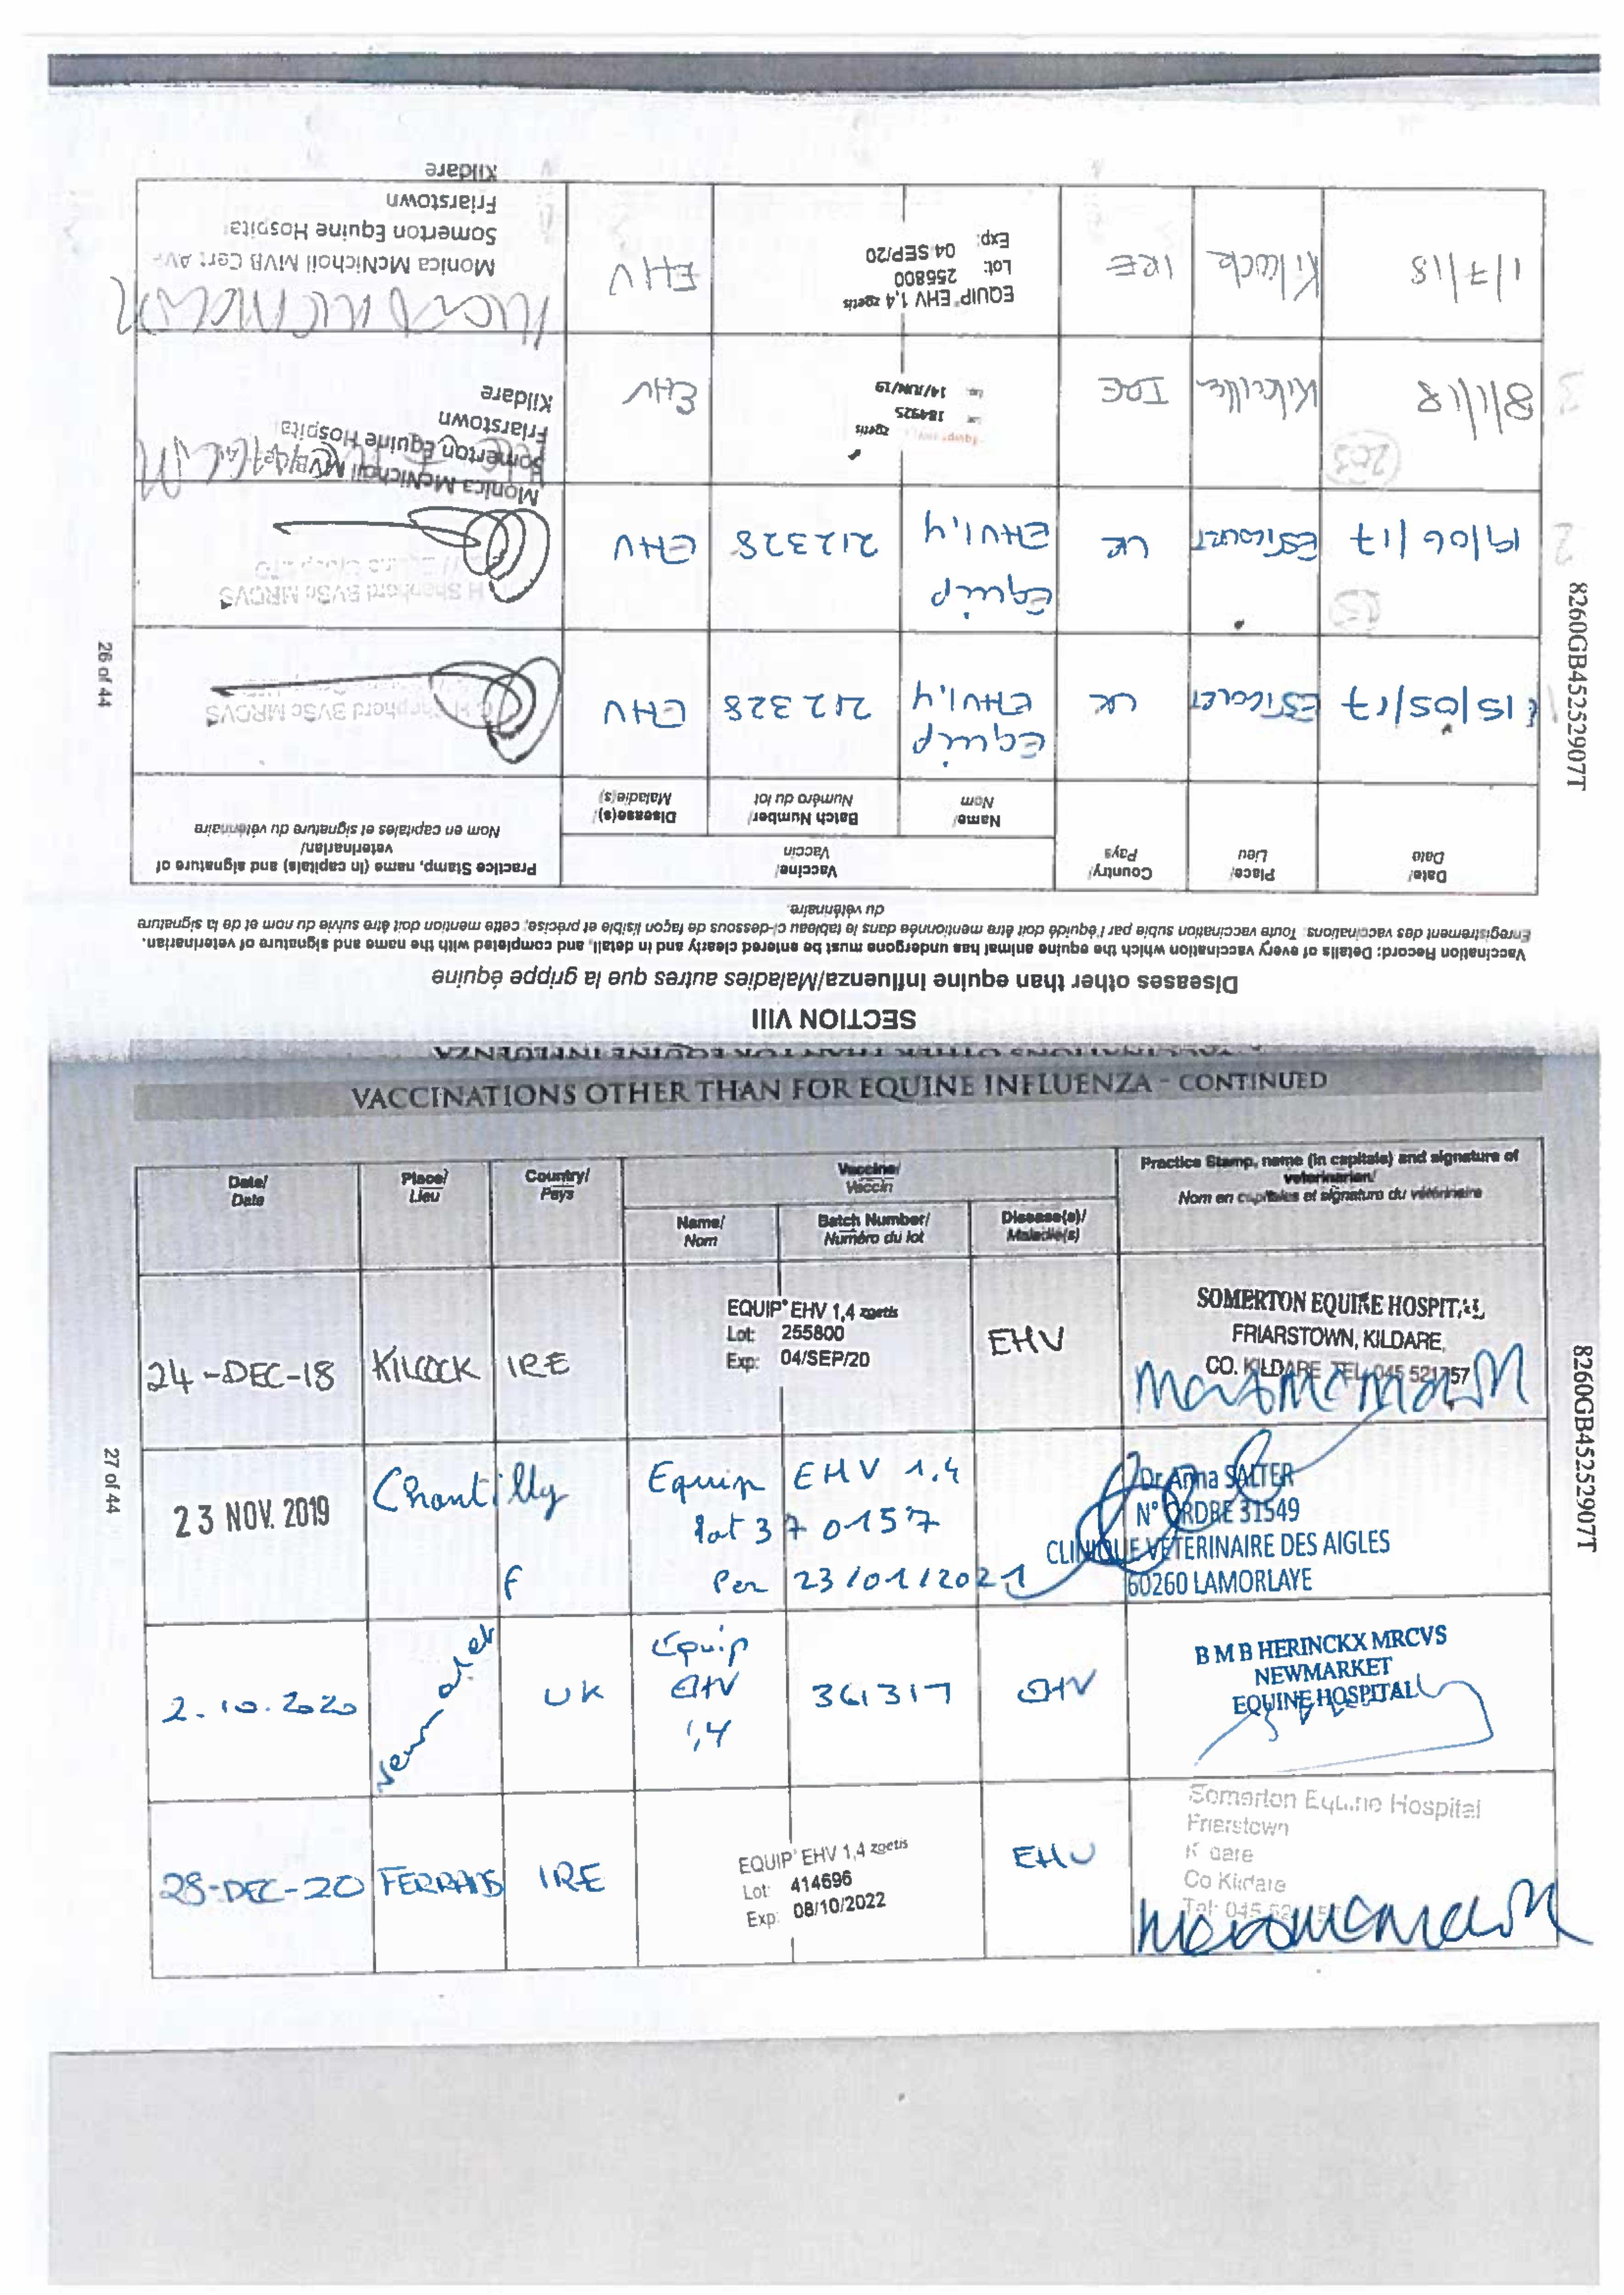 SECTION VIII
Diseases other than equine Influenza/Maladies autres que la grippe équine
Vaccination Record: Details of every vaccination which the equine animal has undergone must be entered clearly and in detail, and completed with the name and signature of veterinarian.
Enregistrement des vaccinations: Toute vaccination subie par l'équidé doit être mentionnée dans le tableau ci-dessous de façon lisible et précise; cette mention doit être suivie du nom et de la signature
du vétérinaire.
Date/ Date
Place/ Lieu
Country/ Pays
Vaccine/ Vaccin
Name/ Nom
Batch Number/ Numéro du lot
Disease(s)/ Maladie(s)
Practice Stamp, name (in capitals) and signature of
veterinarian/
Nom en capitales et signature du vétérinaire
15/05/17 UK Equip EHV1,4 212328 EHV
BVSc MRCVS
19/06/17 UK Equip EHV1,4 212328 EHV
H Shepherd BVSc MRCVS
8/1/18 zoetis 184925 14/JUN/19 EHV
Monica McNicholl MVB
Somerton Equine Hospital
Friarstown
Kildare
1/7/18 IRE EQUIP EHV 1,4 zoetis EHV
Lot: 256800
Exp: 04 SEP/20
Monica McNicholl MVB Cert
Somerton Equine Hospital
Friarstown
Kildare
8260GB45252907T
26 of 44
VACCINATIONS OTHER THAN FOR EQUINE INFLUENZA
VACCINATIONS OTHER THAN FOR EQUINE INFLUENZA - CONTINUED
Date/ Date
Place/ Lieu
Country/ Pays
Vaccine/ Vaccin
Name/ Nom
Batch Number/ Numéro du lot
Disease(s)/ Maladie(s)
Practice Stamp, name (in capitals) and signature of
veterinarian/
Nom en capitales et signature du vétérinaire
24-DEC-18 KILCOCK IRE EQUIP EHV 1,4 zoetis EHV
Lot: 255800
Exp: 04/SEP/20
SOMERTON EQUINE HOSPITAL
FRIARSTOWN, KILDARE,
CO. KILDARE TEL 045 521757
23 NOV. 2019 Chantilly F Equip EHV 1.4
lot 370157
Per 23/01/2021
Dr Anna SALTER
N° ORDRE 31549
CLINIQUE VETERINAIRE DES AIGLES
60260 LAMORLAYE
2.10.2020 UK Equip EHV 1,4 361317 EHV
B M B HERINCKX MRCVS
NEWMARKET
EQUINE HOSPITAL
28-DEC-20 IRE EQUIP EHV 1,4 zoetis EHV
Lot: 414696
Exp: 08/10/2022
Somerton Equine Hospital
Friarstown
Kildare
Co Kildare
Tel: 045
8260GB45252907T
27 of 44